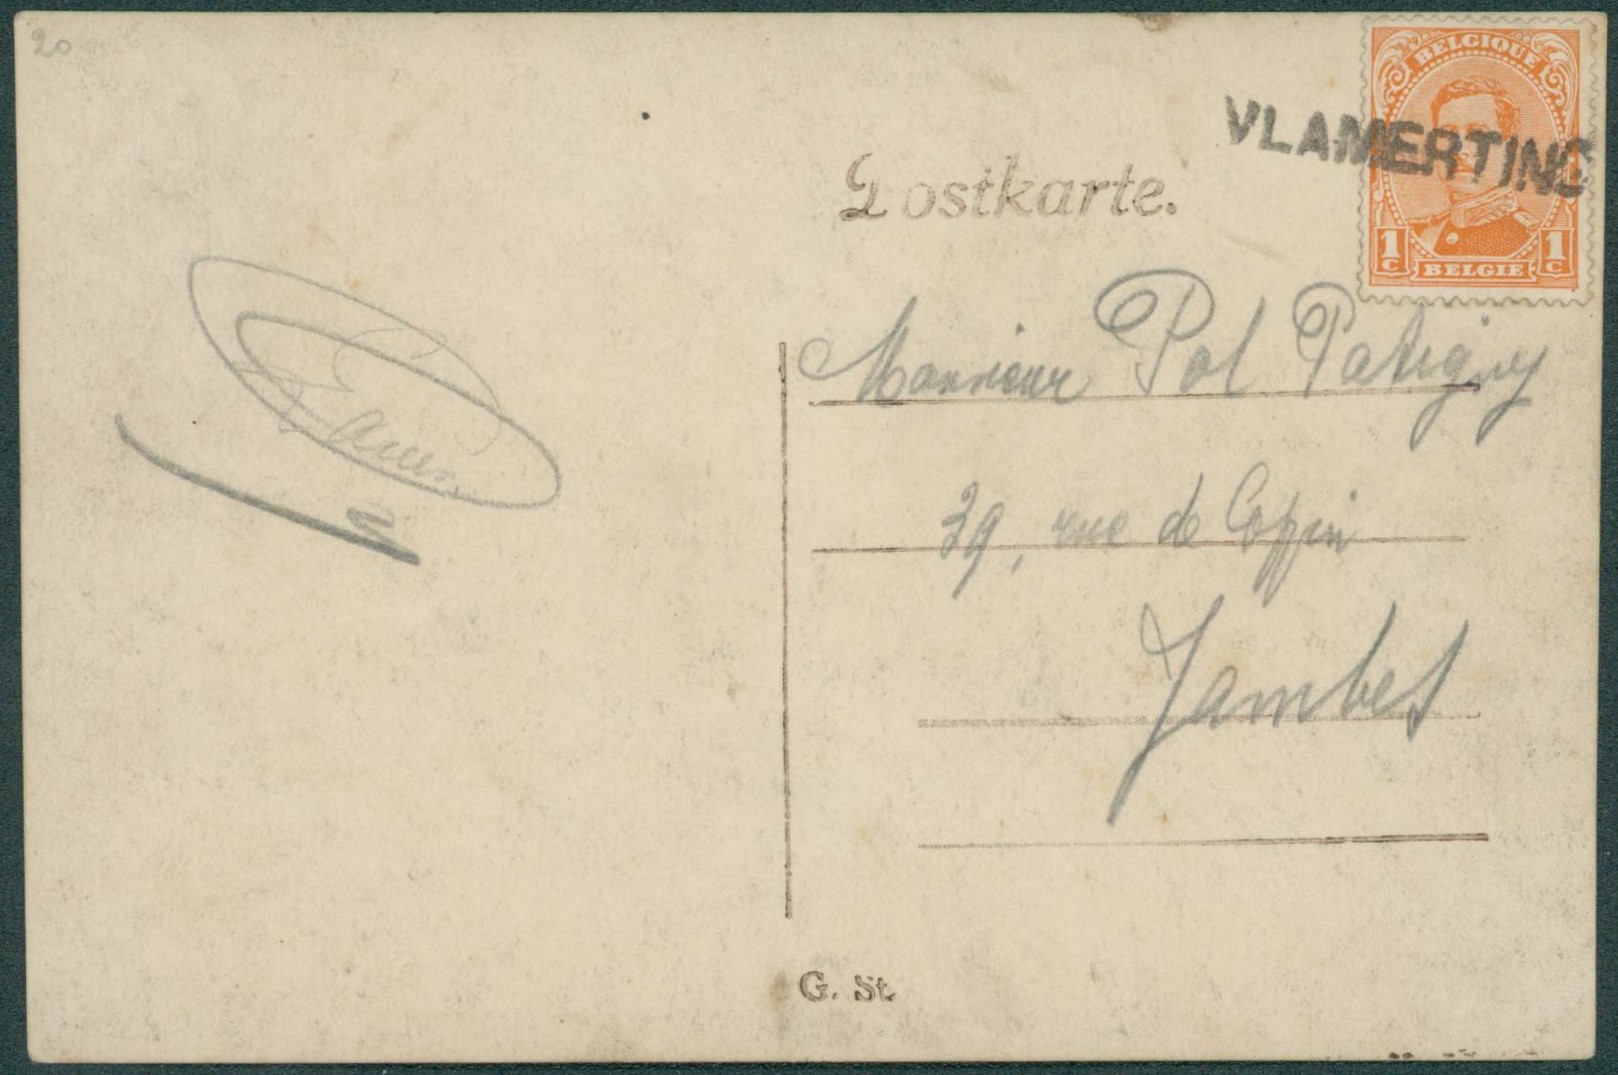 20
BELGIQUE
VLAMERTING
1c
1c
BELGIE
Postkarte.
Monsieur Pol Patigny
39, rue de Coppin
Jambes
G. St.